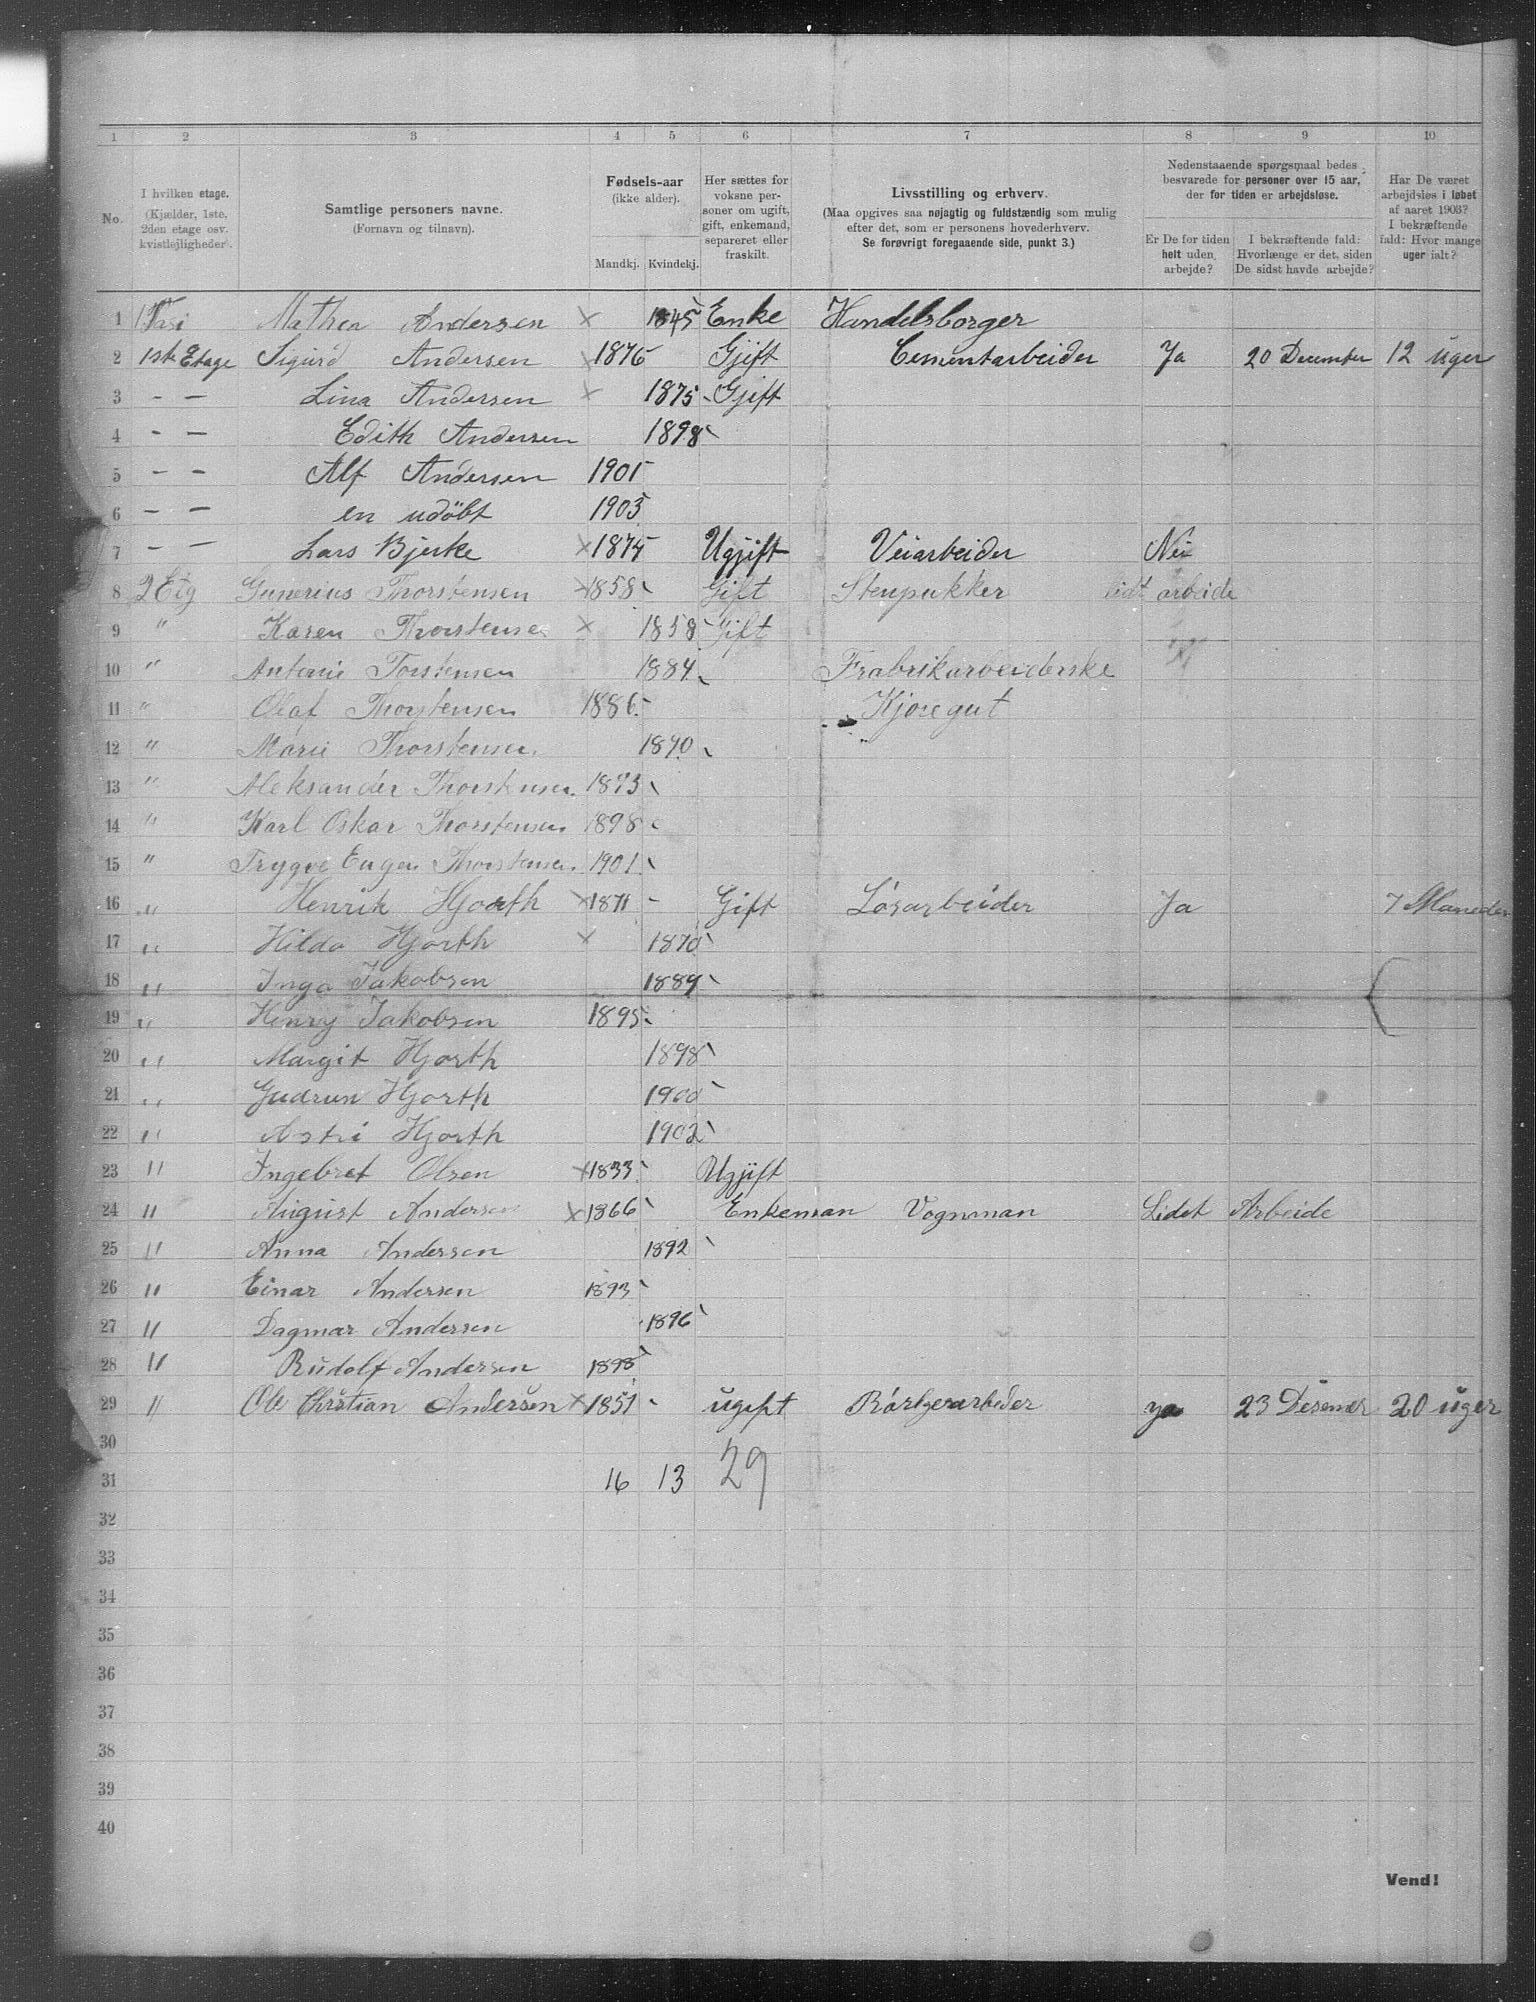 1 2 3 4 5 6 7 8 9 10
No.
I hvilken etage.
(Kjælder, 1ste,
2den etage osv.
kvistlejligheder).
Samtlige personers navne.
(Fornavn og tilnavn).
Fødsels-aar
(ikke alder).
Mandkj. Kvindekj.
Her sættes for
voksne per-
soner om ugift,
gift, enkemand,
separeret eller
fraskilt.
Livsstilling og erhverv.
(Maa opgives saa nøjagtig og fuldstændig som mulig
efter det, som er personens hovederhverv.
Se forøvrigt foregaaende side, punkt 3.)
Nedenstaaende spørgsmaal bedes
besvarede for personer over 15 aar,
der for tiden er arbejdsløse.
Er De for tiden
helt uden
arbejde?
I bekræftende fald:
Hvorlænge er det, siden
De sidst havde arbejde?
Har De været
arbejdsløs i løbet
af aaret 1903?
I bekræftende
fald: Hvor mange
uger ialt?
1 Mathea Andersen × 1845 Enke Handelsborger
2 1ste Etage Sigurd Andersen × 1876 Gjift Cementarbeider Ja 20 December 12 uger
3 - - Lina Andersen × 1875 Gjift
4 - - Edith Andersen 1898
5 - - Alf Andersen 1901
6 - - en udöbt 1903
7 - - Lars Bjerke × 1875 Ugjift Veiarbeider Nei
8 2 Etg Gunerius Thorstensen × 1858 Gift Stenpukker lidt arbeide
9 " Karen Thorstensen × 1858 Gift
10 " Antonie Torstensen 1884 Frabrikarbeiderske
11 " Olaf Thorstensen 1886 Kjøregut
12 " Marie Thorstensen 1890
13 " Aleksander Thorstensen 1893
14 " Karl Oskar Thorstensen 1898
15 " Trygve Eugen Thorstensen 1901
16 " Henrik Hjorth × 1871 - Gift Lösarbeider Ja 7 Maneder
17 " Hilda Hjorth × 1870
18 " Inga Jakobsen 1889
19 " Henry Jakobsen 1895
20 " Margit Hjorth 1898
21 " Gudrun Hjorth 1900
22 " Astri Hjorth 1902
23 " Ingebret Olsen × 1833 Ugjift
24 " August Andersen × 1866 Enkeman Vognman Lidet Arbeide
25 " Anna Andersen 1892
26 " Einar Andersen 1893
27 " Dagmar Andersen 1896
28 " Rudolf Andersen 1898
29 " Ole Christian Andersen × 1851 ugift ja 23 20 uger
30
31 16 13 29
32
33
34
35
36
37
38
39
40
Vend!